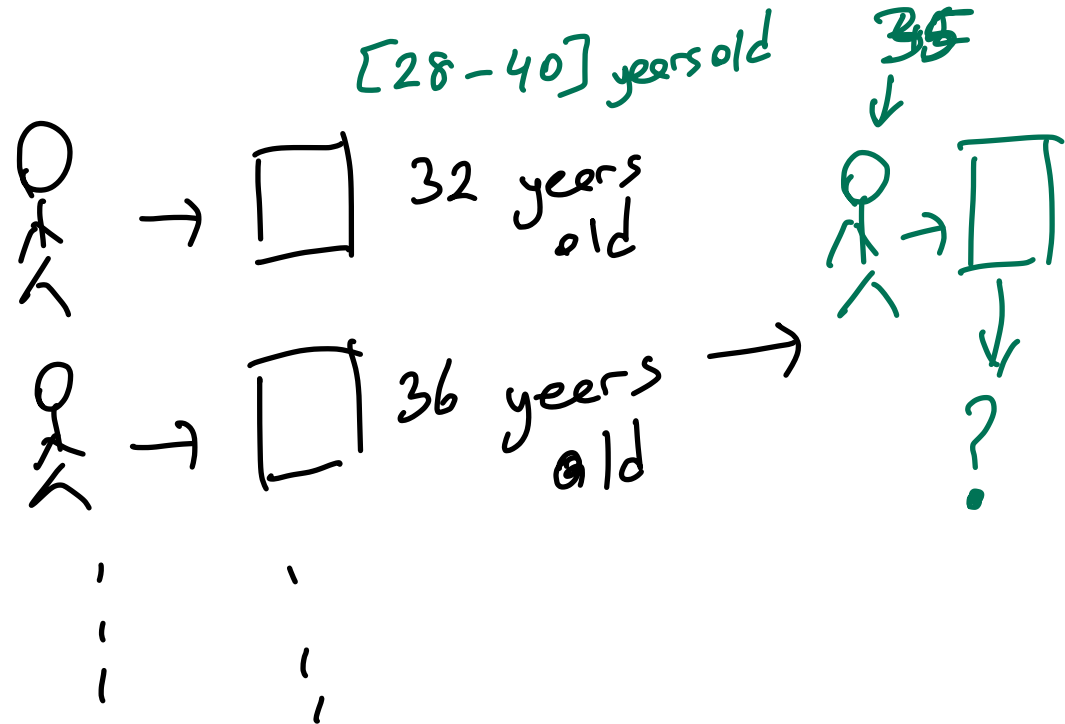 [28-40] years old
35
32 years
old
36 years
old
?